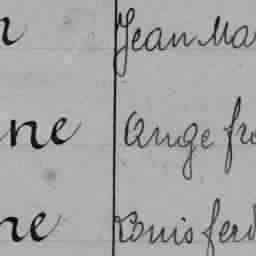 n Jean Ma
ne Ange fr
ne Buis ferd